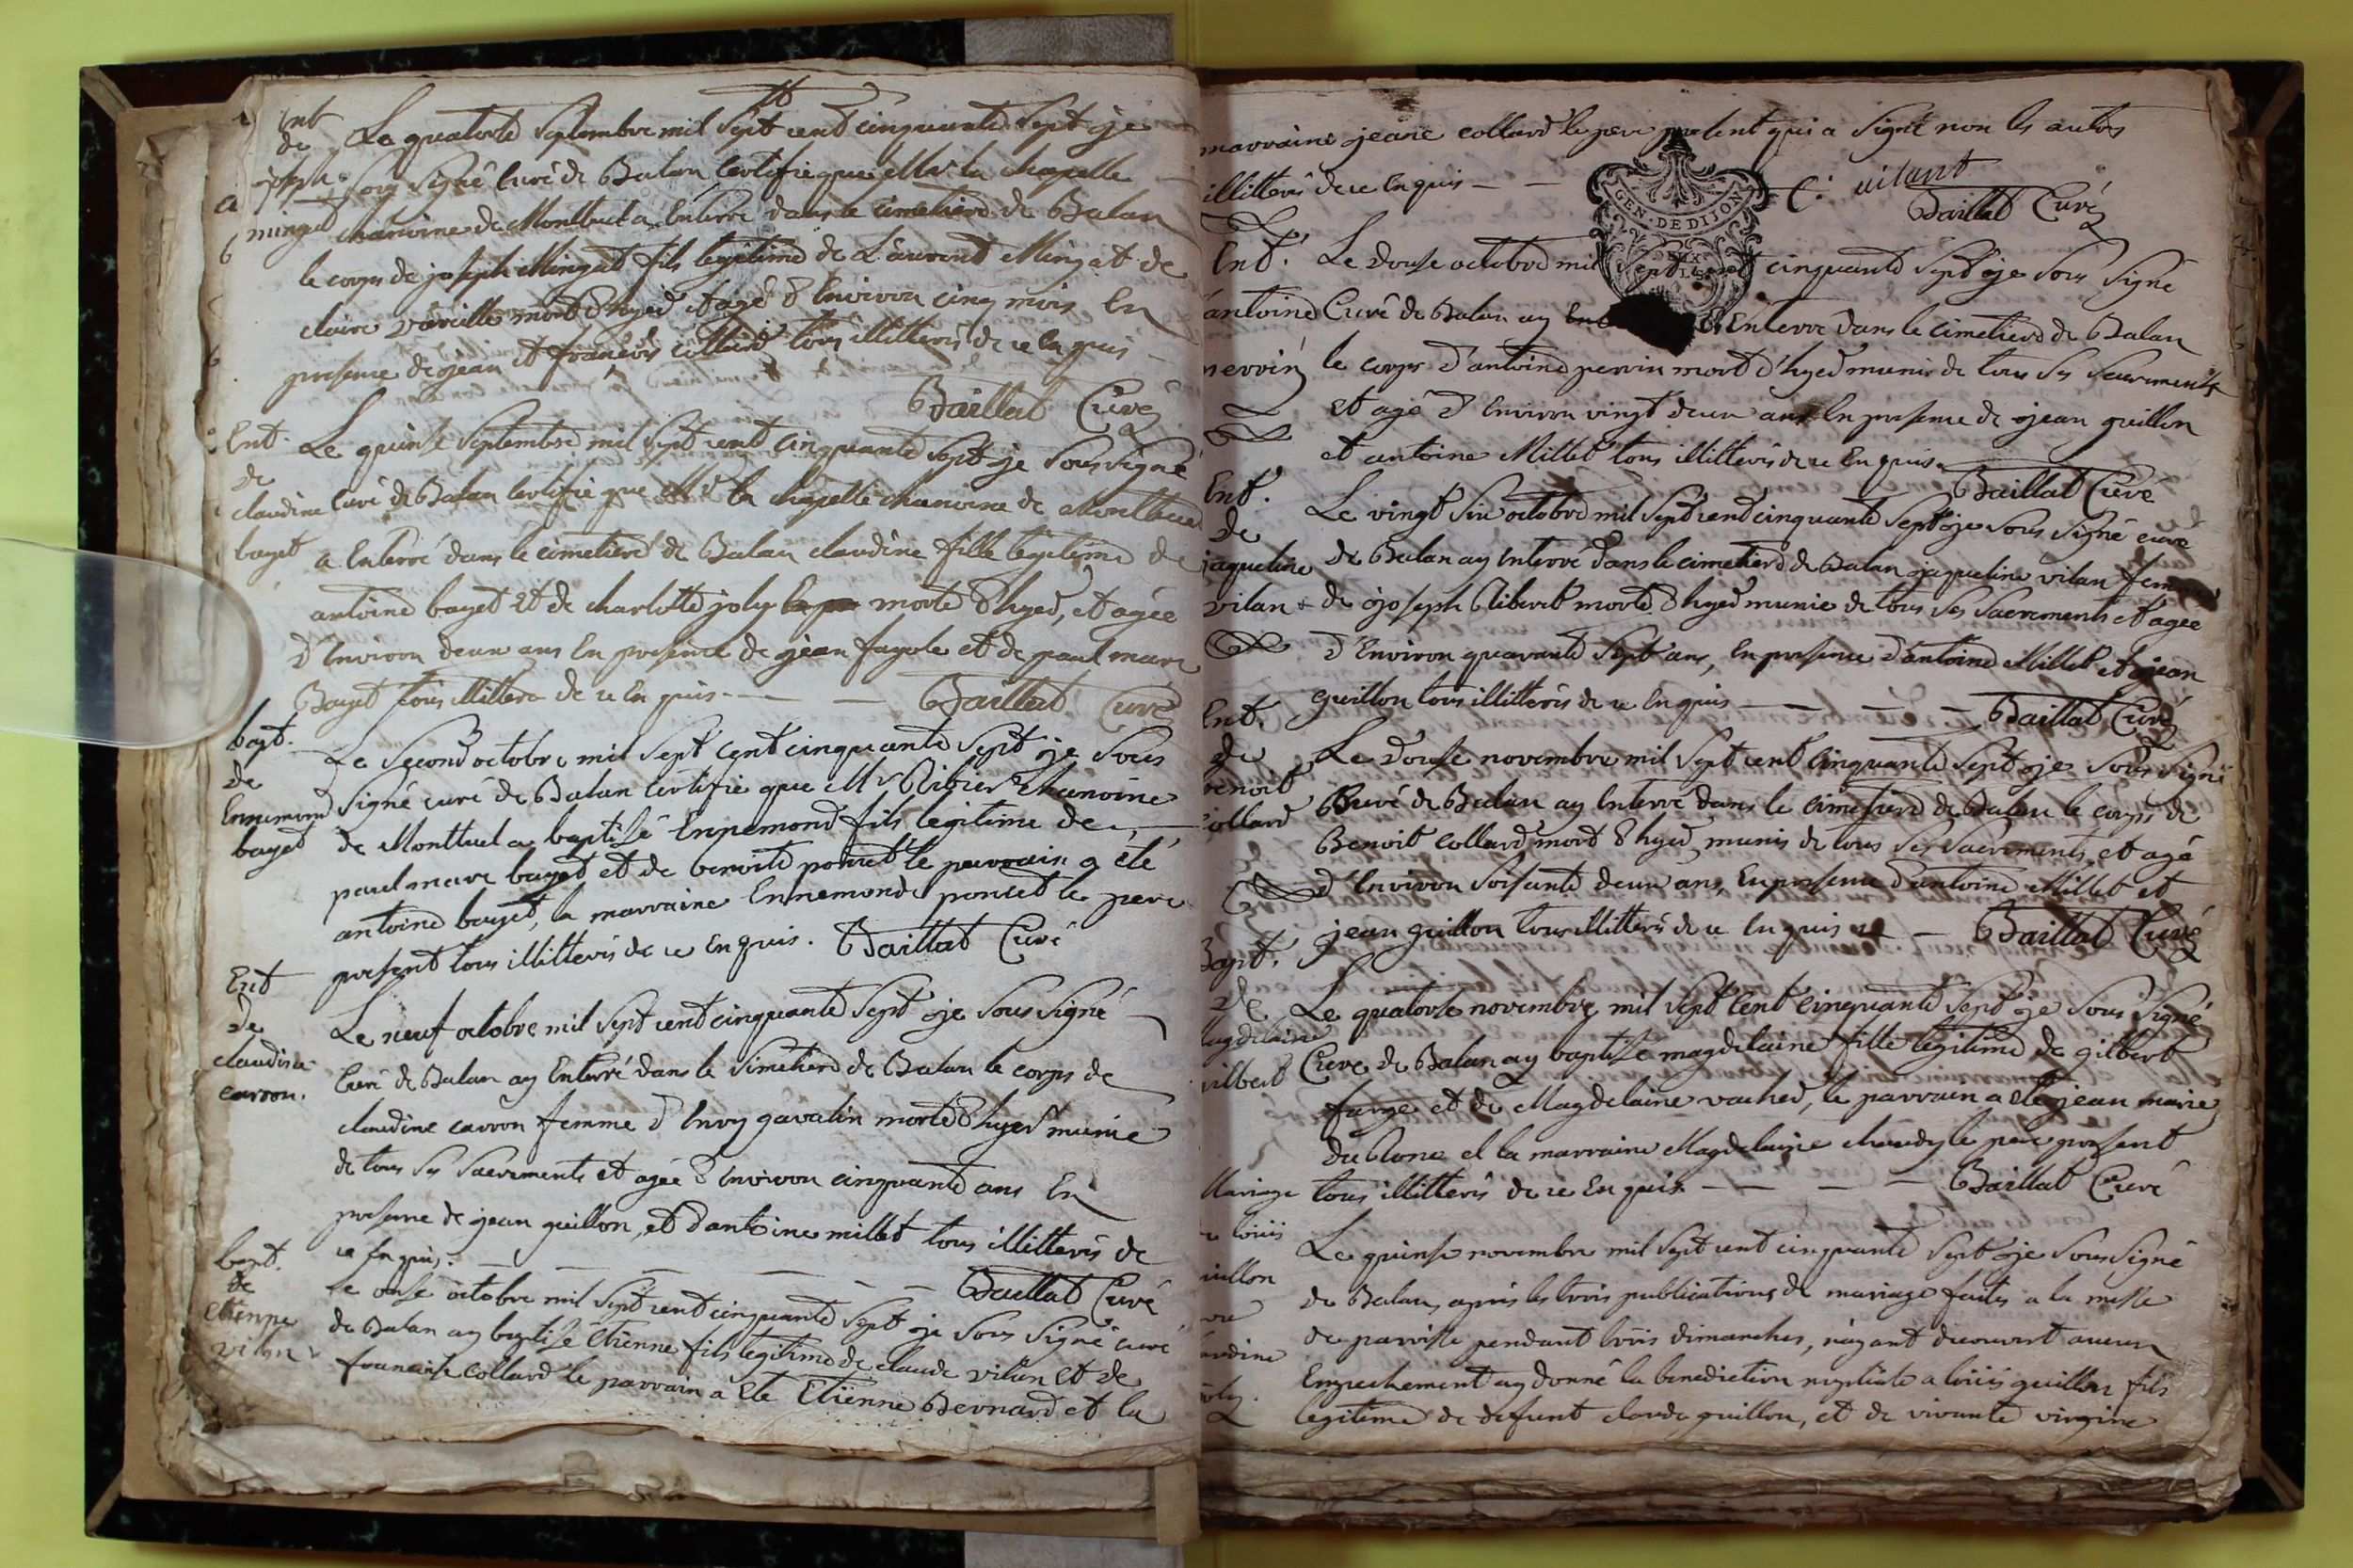 Ent
de
joseph
minget
Le quatorze Septembre mil Sept cent cinquante Sept je
sous signé Curé de Balan certifie que Mr la chapelle
chanoine de Montluel a Enterré dans le cimetiere de Balan
le corps de joseph Mingat fils legitime de Laurent Mingat de
claire mort d'hyer et agé d'Environ cinq mois En
presence de jean et françois collard tous illitterés de ce Enquis
Baillat Curé
Ent.
de
claudine
bayet
Le quinse Septembre mil Sept cent cinquante Sept je Sous signé
Curé de Balan certifie que Mr la chapelle chanoine de Montluel
a Enterré dans le cimetiere de Balan claudine fille legitime de
antoine bayet et de charlotte joly morte d'hyer, et agée
d'Environ deux ans En presence de jean fayole et de paul marc
Bayet tous illittere de ce Enquis - — Baillat Curé
bapt.
de
Ennemond
bayet
Le Second octobre mil Sept cent cinquante Sept je Sous
Signé curé de Balan certifie que Mr Ribier Chanoine
de Montluel a baptisé Ennemond fils legitime de
paul marc bayet et de benoite poncet le parrain a été
antoine bayet, la marraine Ennemonde poncet le pere
present tous illitterés de ce Enquis. Baillat Curé
Ent
de
claudine
carron.
Le neuf octobre mil Sept cent cinquante Sept je Sous signé
Curé de Balan ay Enterré dans le Simetiere de Balan le corps de
claudine carron femme d'Envy gavalin morte d'hyer munie
de tous Ses Sacrements et agée d'Environ cinquante ans En
presence de jean guillon, et d'antoine millet tous illitterés de
ce Enquis. — — — — — Baillat Curé
bapt.
de
Etienne
vilan
Le onse octobre mil Sept cent cinquante Sept je Sous Signé curé
de Balan ay baptisé Etienne fils legitime de claude vilan et de
francoise collard le parrain a Eté Etienne Bernard et la
marraine jeane collard le pere present qui a Signé non les autres
illitterés de ce Enquis — —
C. vilant
Baillat Curé
GEN. DE DIJON
Ent.
antoine
perrin
Le douse octobre mil Sept cent cinquante Sept je Sous Signé
Curé de Balan ay Enterré dans le cimetiere de Balan
le corps d'antoine perrin mort d'hyer munis de tous Ses Sacrements
et agé d'Environ vingt deux ans En presence de jean guillon
et antoine Millet tous illitterés de ce Enquis
Baillat Curé
Ent.
de
jaqueline
vilan
Le vingt Six octobre mil Sept cent cinquante Sept je sous signé curé
de Balan ay Enterré dans le cimetiere de Balan jaqueline vilan
de joseph Ribert morte d'hyer munie de tous Ses Sacrements et agée
d'Environ quarante Sept ans, En presence d'antoine Millet et jean
guillon tous illitterés de ce Enquis — — — — Baillat Curé
Ent.
de
benoit
collard
Le douse novembre mil Sept cent cinquante Sept je Sous Signé
Curé de Balan ay Enterré dans le cimetiere de Balan le corps de
Benoit collard mort d'hyer munis de tous Ses Sacrements, et agé
d'Environ Soisante deux ans, En presence d'antoine Millet et
jean guillon tous illitterés de ce Enquis — Baillat Curé
Bapt.
de
Magdelaine
gilbert
Le quatorse novembre mil Sept Cent cinquante Sept je Sous Signé
Curé de Balan ay baptisé magdelaine fille legitime de gilbert
farge et de Magdelaine vacher, le parrain a Eté jean marie
du Clone et la marraine Magdelaine chaudy le pere present
tous illitterés de ce Enquis — — — — Baillat Curé
Mariage
louis
Le quinse novembre mil Sept cent cinquante Sept je Sous Signé
de Balan, après les trois publications de mariage faites a la messe
de parroisse pendant trois dimanches, n'ayant decouvert aucun
Empechement ay donné la benediction nuptiale a louis guillon fils
legitime de defunt claude guillon, et de vivante virgine